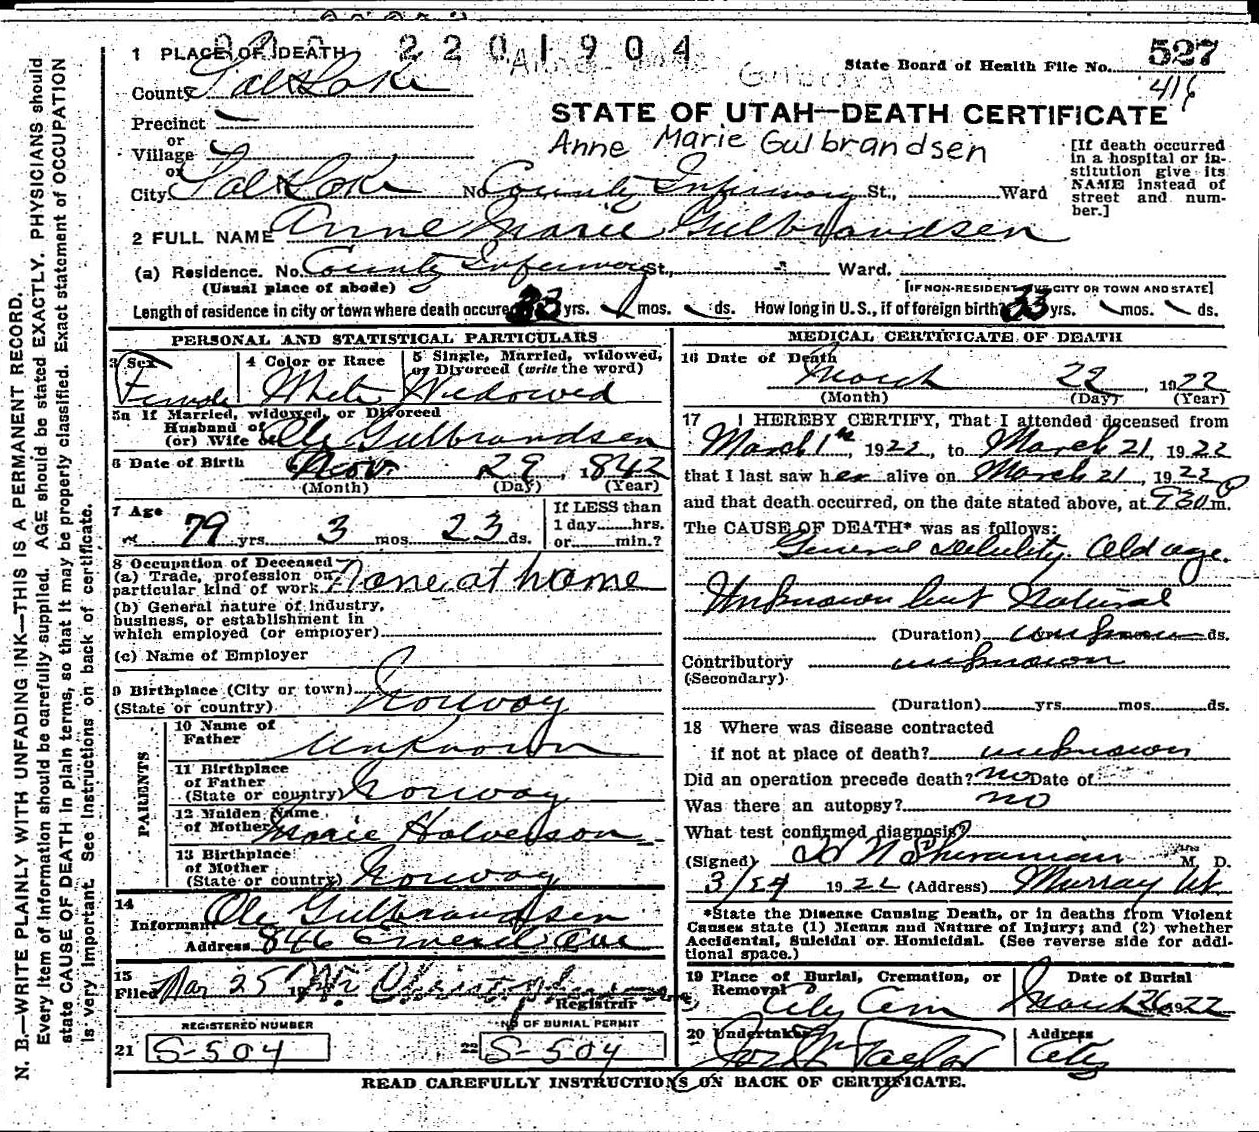 2201904
1 PLACE OF DEATH
State Board of Health File No. 527
416
County Salt Lake
STATE OF UTAH—DEATH CERTIFICATE
Precinct
or
Village
or
Anne Marie Gulbrandsen
[If death occurred in a hospital or institution give its NAME instead of street and number.]
City Salt Lake No. County Infirmary St., Ward
2 FULL NAME Anne Marie Gulbrandsen
(a) Residence. No. County Infirmary St., Ward.
(Usual place of abode)
[IF NON-RESIDENT GIVE CITY OR TOWN AND STATE]
Length of residence in city or town where death occured 33 yrs. mos. ds. How long in U.S., if of foreign birth? 33 yrs. mos. ds.
PERSONAL AND STATISTICAL PARTICULARS
3 Sex Female
4 Color or Race White
5 Single, Married, widowed, or Divorced (write the word) Widowed
5a If Married, widowed, or Divorced
Husband of
(or) Wife of Ole Gulbrandsen
6 Date of Birth Nov. 29, 1842
(Month) (Day) (Year)
7 Age 79 yrs. 3 mos. 23 ds.
If LESS than
1 day hrs.
or min.?
8 Occupation of Deceased
(a) Trade, profession or
particular kind of work None at home
(b) General nature of industry,
business, or establishment in
which employed (or employer)
(c) Name of Employer
9 Birthplace (City or town)
(State or country) Norway
PARENTS
10 Name of
Father Unknown
11 Birthplace
of Father
(State or country) Norway
12 Maiden Name
of Mother Marie Halverson
13 Birthplace
of Mother
(State or country) Norway
14
Informant Ole Gulbrandsen
Address 846 Emerald Ave
15
Filed Mar 25 19
Registrar
REGISTERED NUMBER
NO OF BURIAL PERMIT
21 S-504
22 S-504
MEDICAL CERTIFICATE OF DEATH
16 Date of Death
March 22, 1922
(Month) (Day) (Year)
17 I HEREBY CERTIFY, That I attended deceased from
March 1st, 1922, to March 21, 1922
that I last saw her alive on March 21, 1922
and that death occurred, on the date stated above, at 930 P m.
The CAUSE OF DEATH* was as follows:
General Debility. Old age.
Unknown but Natural
(Duration) unknown ds.
Contributory unknown
(Secondary)
(Duration) yrs. mos. ds.
18 Where was disease contracted
if not at place of death? unknown
Did an operation precede death? no Date of
Was there an autopsy? no
What test confirmed diagnosis?
(Signed) M. D.
3/24 1922 (Address) Murray Ut.
*State the Disease Causing Death, or in deaths from Violent
Causes state (1) Means and Nature of Injury; and (2) whether
Accidental, Suicidal or Homicidal. (See reverse side for addi-
tional space.)
19 Place of Burial, Cremation, or
Removal City Cem
Date of Burial
March 26 1922
20 Undertaker Jos Wm Taylor
Address
City
READ CAREFULLY INSTRUCTIONS ON BACK OF CERTIFICATE.
N. B.—WRITE PLAINLY WITH UNFADING INK—THIS IS A PERMANENT RECORD.
Every item of information should be carefully supplied. AGE should be stated EXACTLY. PHYSICIANS should
state CAUSE OF DEATH in plain terms, so that it may be properly classified. Exact statement of OCCUPATION
is very important. See instructions on back of certificate.